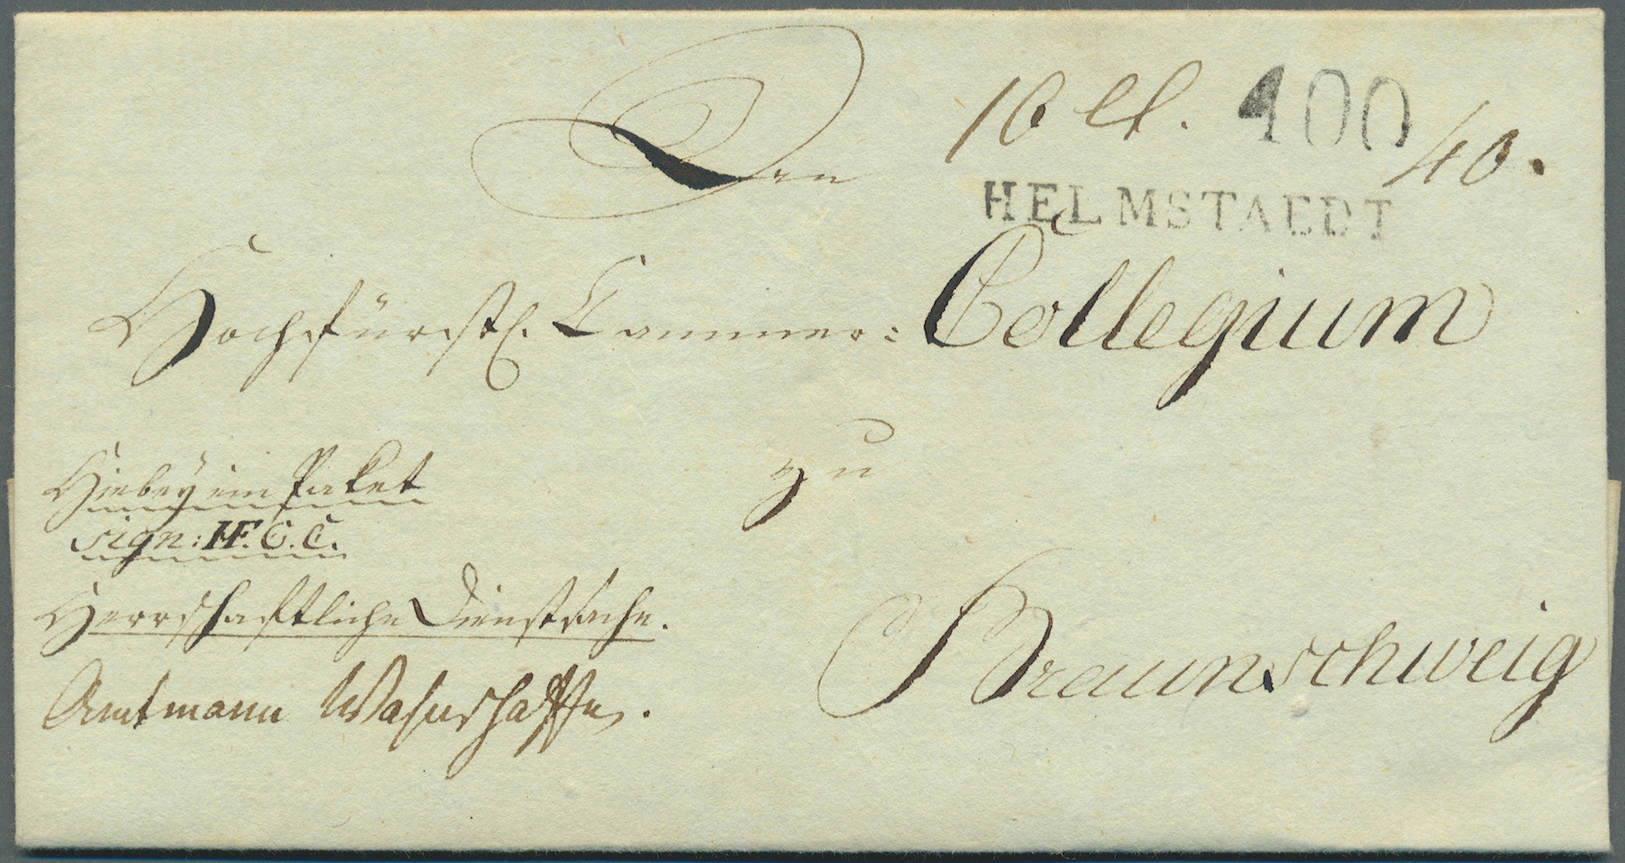 10 lt. 400
40.
HELMSTAEDT
Den
Hochfürstl. Cammer=Collegium
zu
Braunschweig
Hiebey ein Paket
sign: H.F.C.C.
Herrschaftliche Dienstsache.
Amtmann Wahnschaffe.